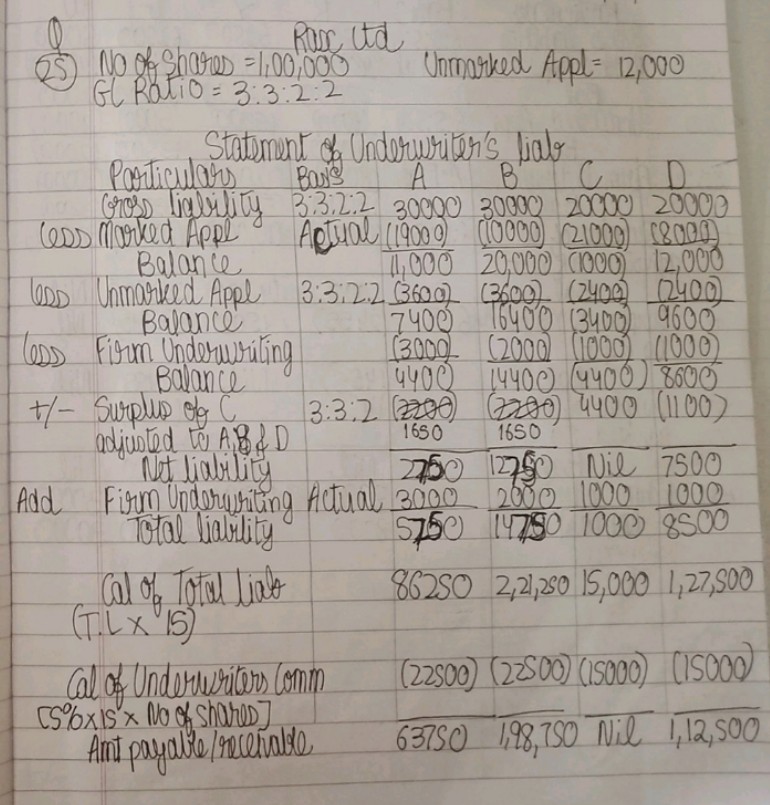 Q Rax Ltd
25 No of Shares = 1,00,000 Unmarked Appl = 12,000
GL Ratio = 3:3:2:2
Statement of Underwriter's liab
Particulars Basis A B C D
Gross liability 3:3:2:2 30000 30000 20000 20000
less Marked Appl Actual (19000) (10000) (21000) (8000)
Balance 11,000 20,000 (1000) 12,000
less Unmarked Appl 3:3:2:2 (3600) (3600) (2400) (2400)
Balance 7400 16400 (3400) 9600
less Firm Underwriting (3000) (2000) (1000) (1000)
Balance 4400 14400 (4400) 8600
+/- Surplus of C 3:3:2 (2200) (2200) 4400 (1100)
adjusted to A,B & D 1650 1650
Net liability 2750 12750 Nil 7500
Add Firm Underwriting Actual 3000 2000 1000 1000
Total liability 5750 14750 1000 8500
Cal of Total liab 86250 2,21,250 15,000 1,27,500
(T.L x 15)
Cal of Underwriters Comm (22500) (22500) (15000) (15000)
[5% x 15 x No of shares]
Amt payable/receivable 63750 1,98,750 Nil 1,12,500